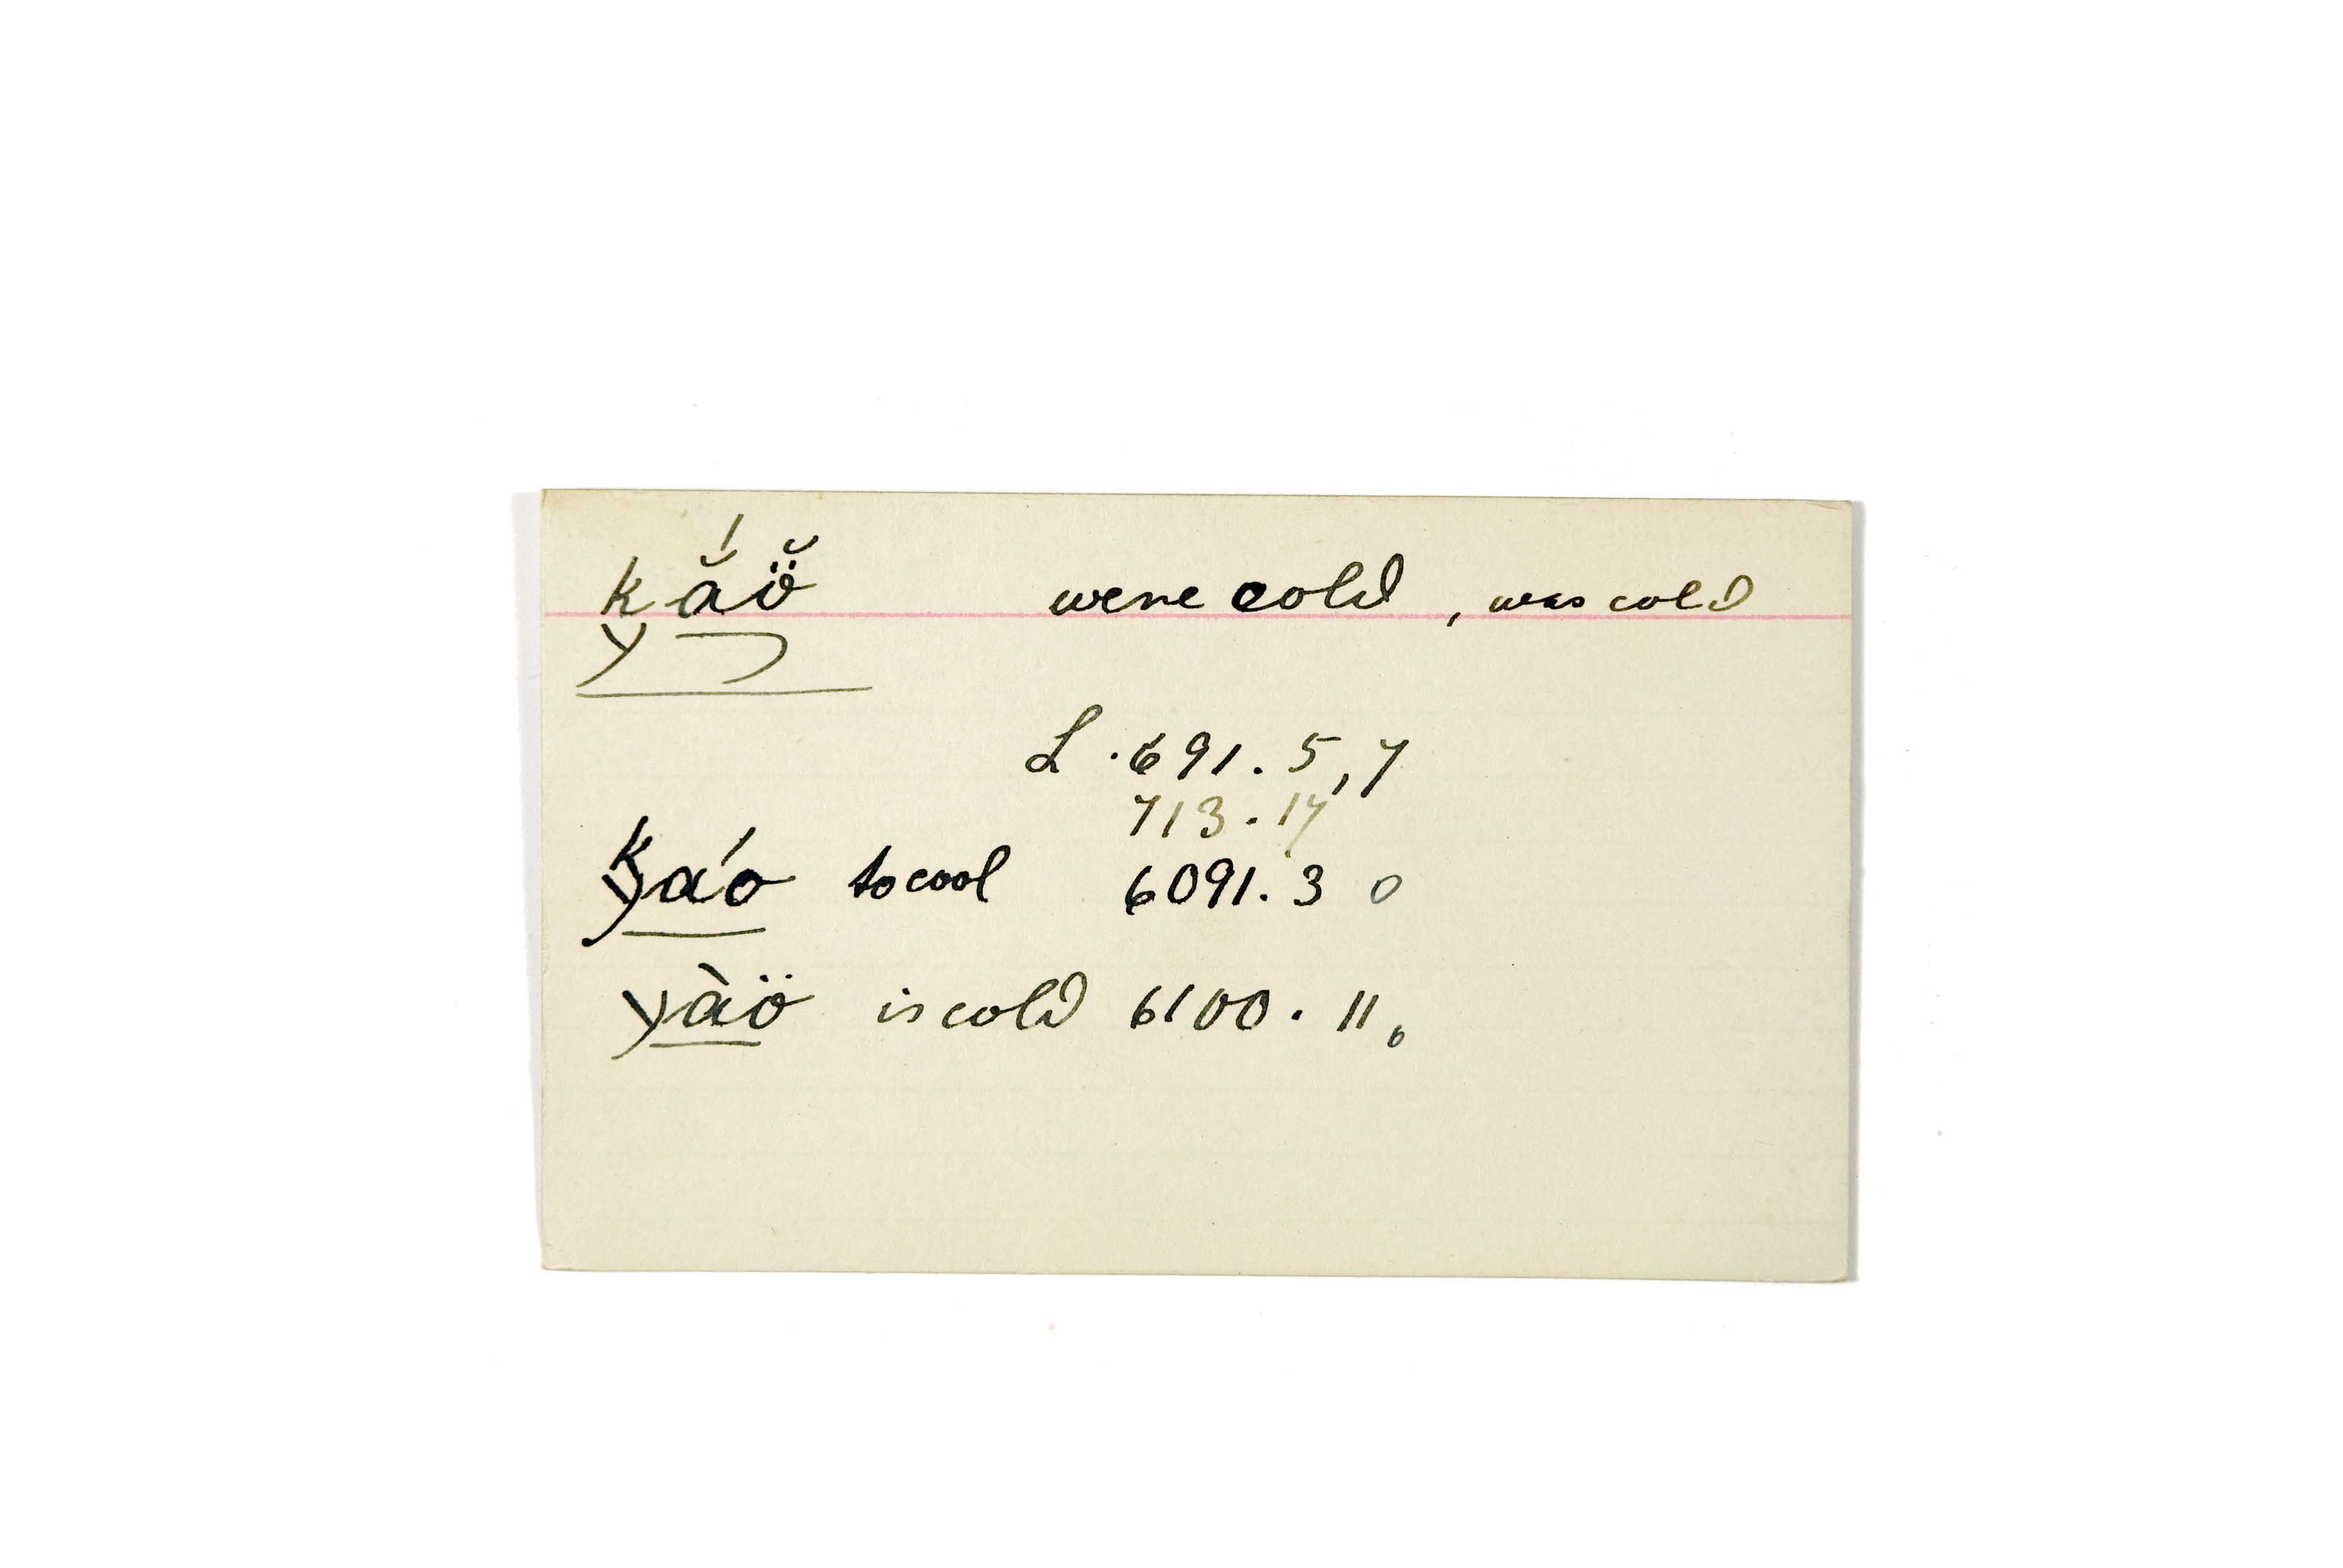 kắö̆ were cold, was cold
y
L. 691. 5,7
713. 17
ka'o to cool 6091. 3 o
yàö is cold 6100. 11 o